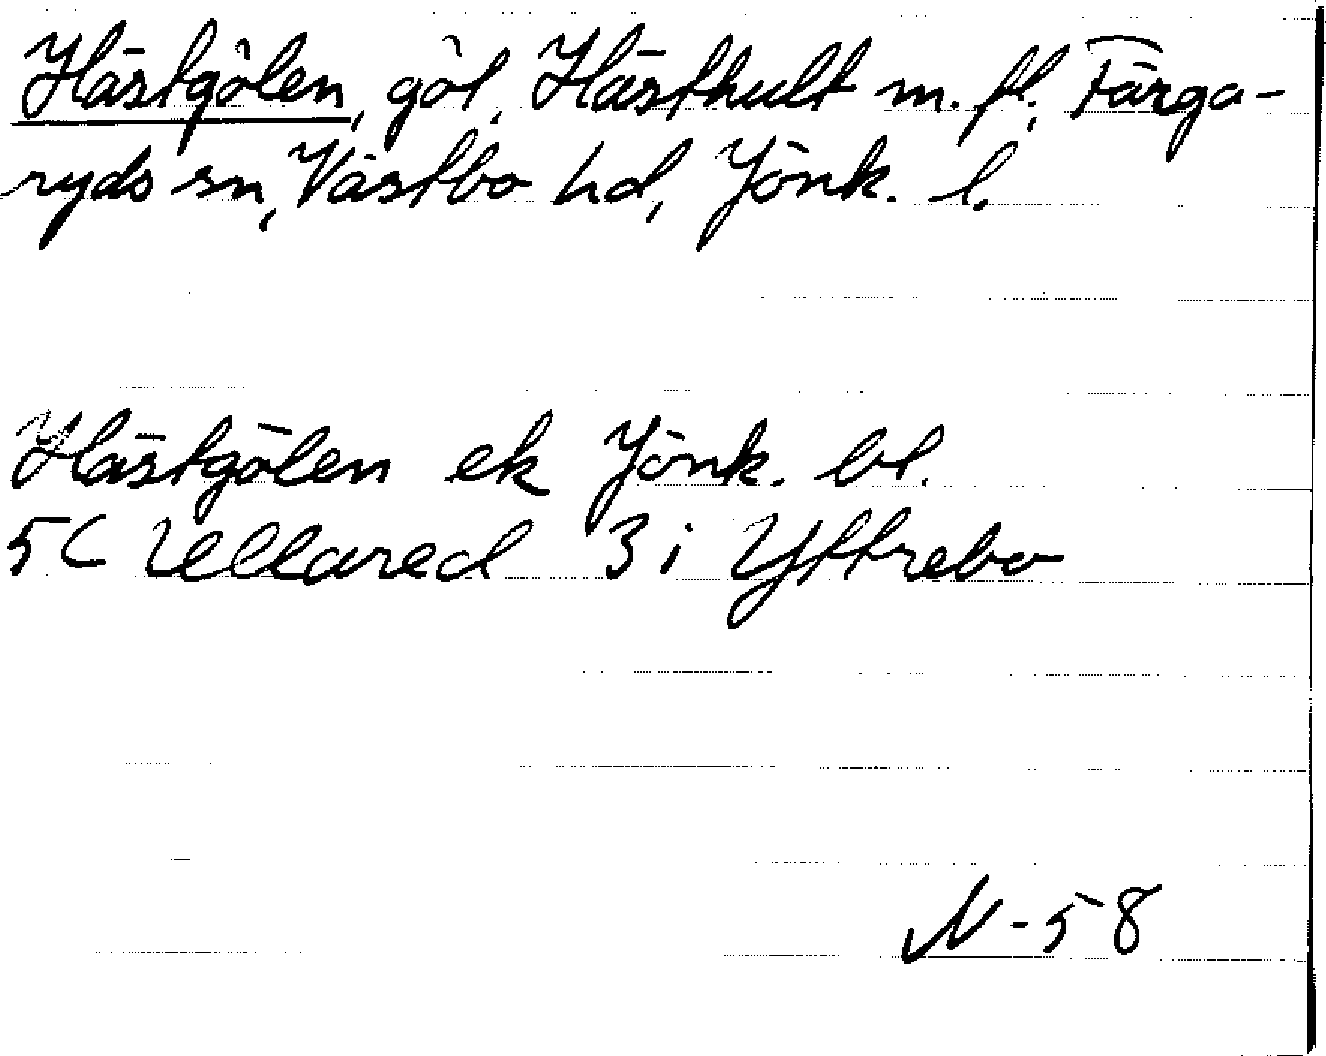 Hästgölen, göl, Hästhult m. fl., Färga-
ryds sn, Västbo hd, Jönk. l.
Hästgölen ek Jönk. bl.
5C Ullared 3i Yttrebo
N-58